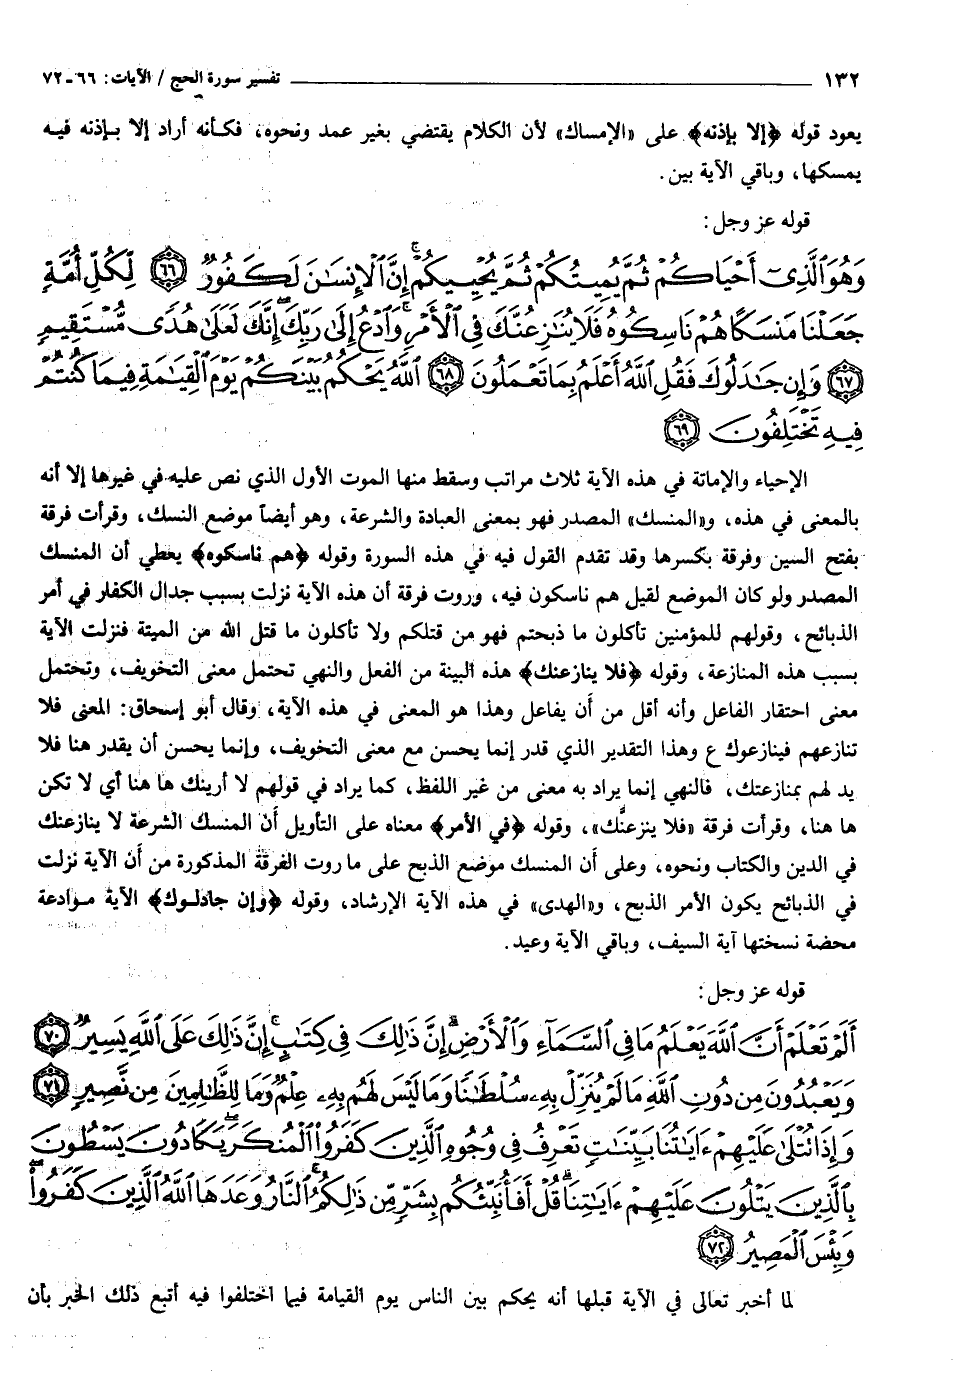 ١٣٢ تفسير سورة الحج / الآيات: ٦٦ - ٧٢
يعود قوله ﴿إلا بإذنه﴾ على «الإمساك» لأن الكلام يقتضي بغير عمد ونحوه، فكأنه أراد إلا بإذنه فيه
يمسكها، وباقي الآية بين.
قوله عز وجل:
وَهُوَ ٱلَّذِىٓ أَحْيَاكُمْ ثُمَّ يُمِيتُكُمْ ثُمَّ يُحْيِيكُمْ ۗ إِنَّ ٱلْإِنسَٰنَ لَكَفُورٌ ﴿٦٦﴾ لِكُلِّ أُمَّةٍ
جَعَلْنَا مَنسَكًا هُمْ نَاسِكُوهُ فَلَا يُنَٰزِعُنَّكَ فِى ٱلْأَمْرِ ۚ وَٱدْعُ إِلَىٰ رَبِّكَ ۖ إِنَّكَ لَعَلَىٰ هُدًى مُّسْتَقِيمٍ
﴿٦٧﴾ وَإِن جَٰدَلُوكَ فَقُلِ ٱللَّهُ أَعْلَمُ بِمَا تَعْمَلُونَ ﴿٦٨﴾ ٱللَّهُ يَحْكُمُ بَيْنَكُمْ يَوْمَ ٱلْقِيَٰمَةِ فِيمَا كُنتُمْ
فِيهِ تَخْتَلِفُونَ ﴿٦٩﴾
الإحياء والإماتة في هذه الآية ثلاث مراتب وسقط منها الموت الأول الذي نص عليه في غيرها إلا أنه
بالمعنى في هذه، و«المنسك» المصدر فهو بمعنى العبادة والشرعة، وهو أيضاً موضع النسك، وقرأت فرقة
بفتح السين وفرقة بكسرها وقد تقدم القول فيه في هذه السورة وقوله ﴿هم ناسكوه﴾ يعطي أن المنسك
المصدر ولو كان الموضع لقيل هم ناسكون فيه، وروت فرقة أن هذه الآية نزلت بسبب جدال الكفار في أمر
الذبائح، وقولهم للمؤمنين تأكلون ما ذبحتم فهو من قتلكم ولا تأكلون ما قتل الله من الميتة فنزلت الآية
بسبب هذه المنازعة، وقوله ﴿فلا ينازعنك﴾ هذه البينة من الفعل والنهي تحتمل معنى التخويف، وتحتمل
معنى احتقار الفاعل وأنه أقل من أن يفاعل وهذا هو المعنى في هذه الآية، وقال أبو إسحاق: المعنى فلا
تنازعهم فينازعوك ع وهذا التقدير الذي قدر إنما يحسن مع معنى التخويف، وإنما يحسن أن يقدر هنا فلا
يد لهم بمنازعتك، فالنهي إنما يراد به معنى من غير اللفظ، كما يراد في قولهم لا أرينك ها هنا أي لا تكن
ها هنا، وقرأت فرقة «فلا ينزعنَّك»، وقوله ﴿في الأمر﴾ معناه على التأويل أن المنسك الشرعة لا ينازعنك
في الدين والكتاب ونحوه، وعلى أن المنسك موضع الذبح على ما روت الفرقة المذكورة من أن الآية نزلت
في الذبائح يكون الأمر الذبح، و«الهدى» في هذه الآية الإرشاد، وقوله ﴿وإن جادلوك﴾ الآية موادعة
محضة نسختها آية السيف، وباقي الآية وعيد.
قوله عز وجل:
أَلَمْ تَعْلَمْ أَنَّ ٱللَّهَ يَعْلَمُ مَا فِى ٱلسَّمَآءِ وَٱلْأَرْضِ ۗ إِنَّ ذَٰلِكَ فِى كِتَٰبٍ ۚ إِنَّ ذَٰلِكَ عَلَى ٱللَّهِ يَسِيرٌ ﴿٧٠﴾
وَيَعْبُدُونَ مِن دُونِ ٱللَّهِ مَا لَمْ يُنَزِّلْ بِهِۦ سُلْطَٰنًا وَمَا لَيْسَ لَهُم بِهِۦ عِلْمٌ ۗ وَمَا لِلظَّٰلِمِينَ مِن نَّصِيرٍ ﴿٧١﴾
وَإِذَا تُتْلَىٰ عَلَيْهِمْ ءَايَٰتُنَا بَيِّنَٰتٍ تَعْرِفُ فِى وُجُوهِ ٱلَّذِينَ كَفَرُوا۟ ٱلْمُنكَرَ ۖ يَكَادُونَ يَسْطُونَ
بِٱلَّذِينَ يَتْلُونَ عَلَيْهِمْ ءَايَٰتِنَا ۗ قُلْ أَفَأُنَبِّئُكُم بِشَرٍّ مِّن ذَٰلِكُمُ ۗ ٱلنَّارُ وَعَدَهَا ٱللَّهُ ٱلَّذِينَ كَفَرُوا۟ ۖ
وَبِئْسَ ٱلْمَصِيرُ ﴿٧٢﴾
لما أخبر تعالى في الآية قبلها أنه يحكم بين الناس يوم القيامة فيما اختلفوا فيه أتبع ذلك الخبر بأن